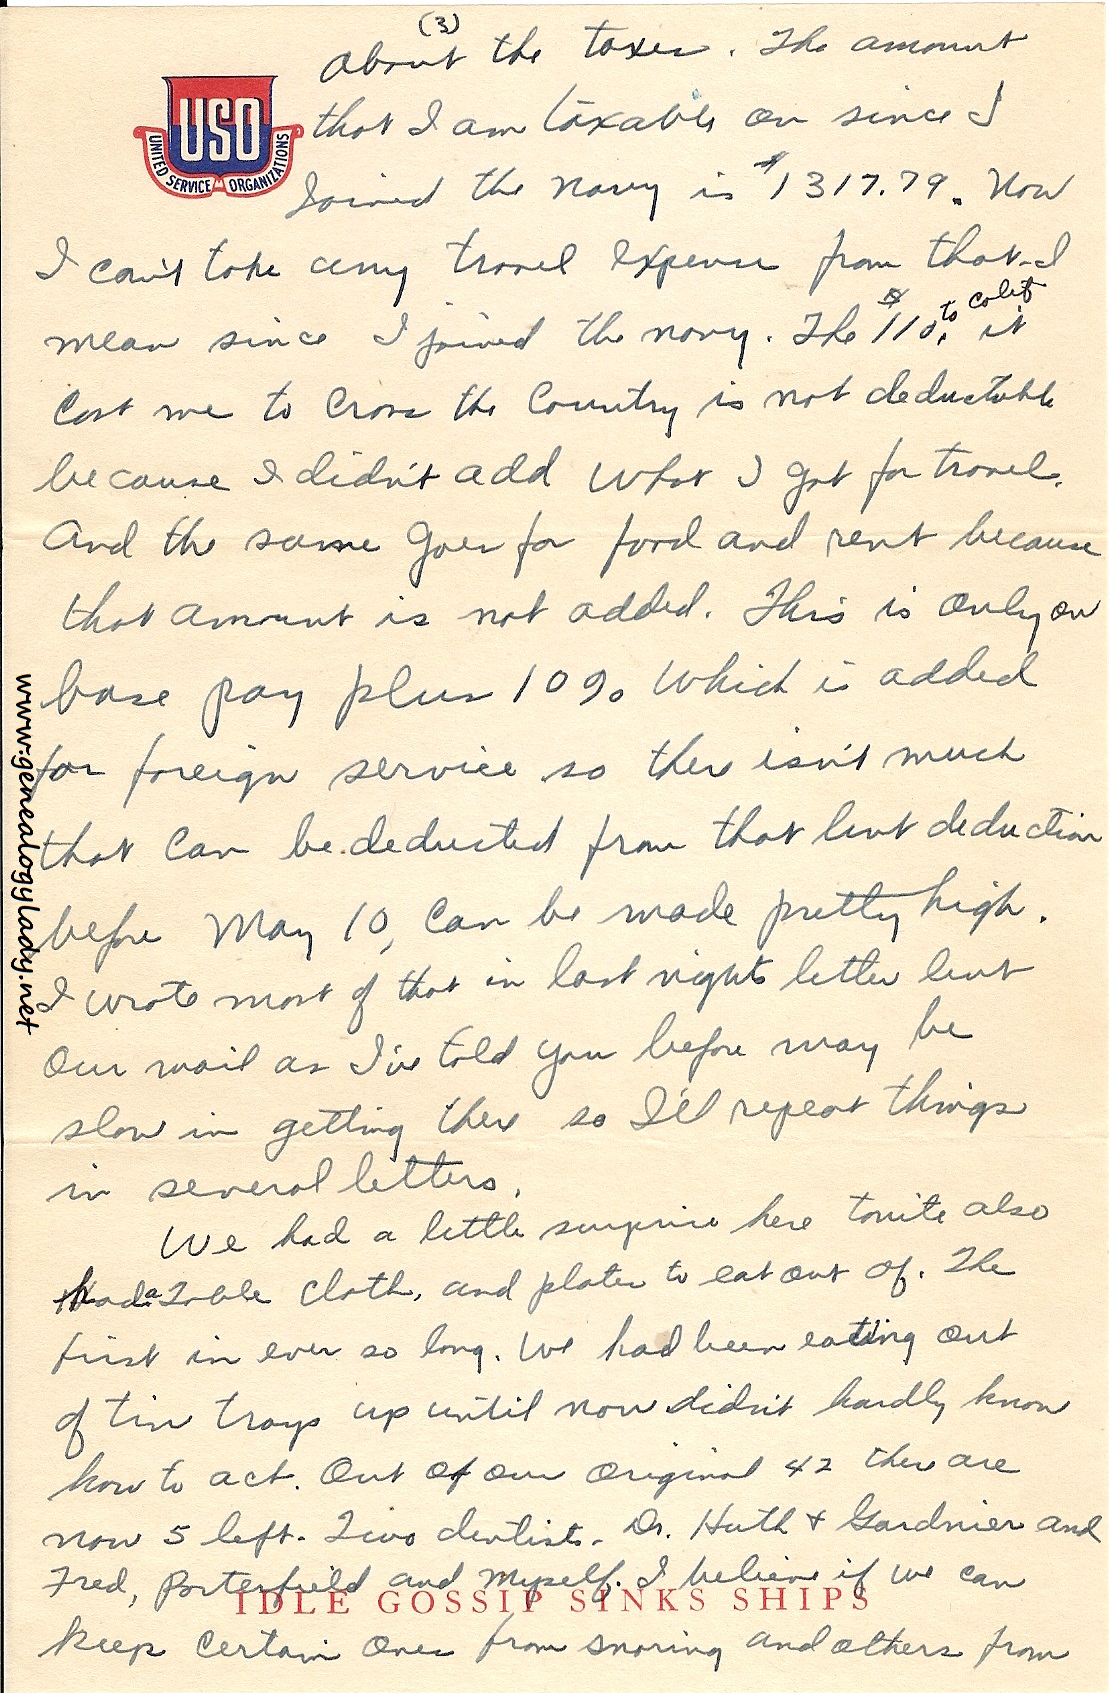 (3)
about the taxes. The amount
that I am taxable on since I
Joined the navy is $1317.79. Now
I can't take any travel expense from that-I
mean since I joined the navy. The $110. to Calif it
Cost me to Cross the Country is not deductable
because I didn't add what I got for travel.
And the same goes for food and rent because
that amount is not added. This is only on
base pay plus 10% which is added
for foreign service so there isn't much
that can be deducted from that but deduction
before May 10, can be made pretty high.
I wrote most of that in last nights letter but
our mail as I've told you before may be
slow in getting there so I'll repeat things
in several letters.
We had a little surprise here tonite also
had a Table Cloth, and plates to eat out of. The
first in ever so long. We had been eating out
of tin trays up until now didn't hardly know
how to act. Out of our original 42 there are
now 5 left. Two dentists. Dr. Huth & Gardnier and
Fred, Porterfield and Myself. I believe if we can
keep certain ones from snoring and others from
USO
UNITED SERVICE ORGANIZATIONS
IDLE GOSSIP SINKS SHIPS
www.genealogylady.net